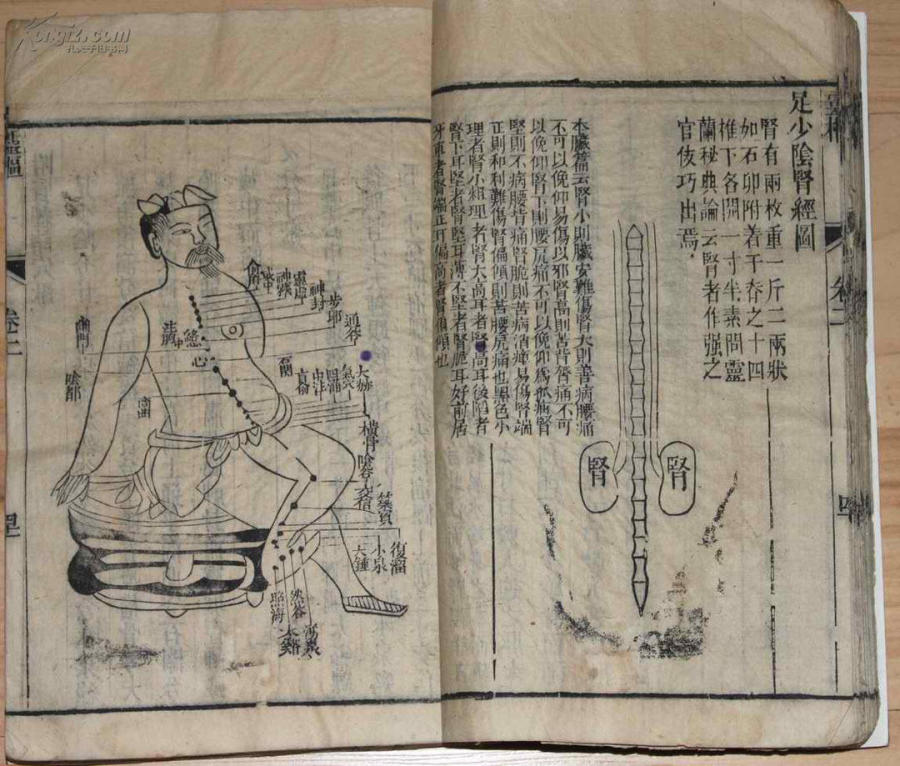 足少陰腎經圖
腎有兩枚重一斤二兩狀
如石卵附着于脊之十四
椎下各開一寸半素問靈
蘭秘典論云腎者作强之
官伎巧出焉
本臟篇云腎小則臟安難傷腎大則善病腰痛
不可以俛仰易傷以邪腎高則苦背膂痛不可
以俛仰腎下則腰尻痛不可以俛仰為狐疝腎
堅則不病腰背痛腎脆則苦病消癉易傷腎端
正則和利難傷腎偏傾則苦腰尻痛也黑色小
理者腎小粗理者腎大高耳者腎高耳後陷者
腎下耳堅者腎堅耳薄不堅者腎脆耳好前居
牙車者腎端正耳偏高者腎偏傾也
腎
腎
卷二
四
俞府
神藏
靈墟
神封
步郎
通谷
幽門
陰都
商曲
石關
心
肓俞
中注
四滿
氣穴
大赫
橫骨
陰谷
交信
築賓
復溜
小泉
大鍾
照海
然谷
湧泉
卷二
kongfz.com
孔夫子旧书网